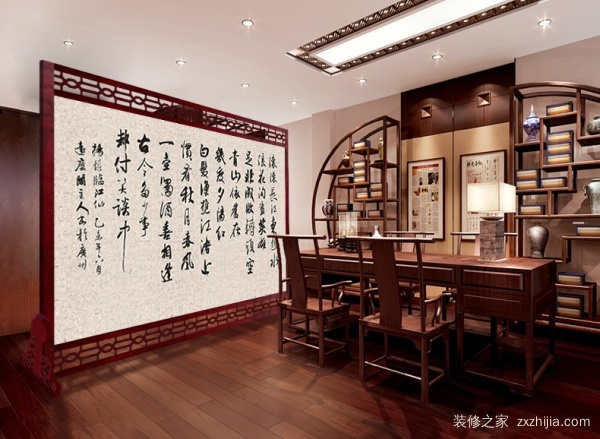 滚滚长江东逝水
浪花淘尽英雄
是非成败转头空
青山依旧在
几度夕阳红
白髮渔樵江渚上
惯看秋月春风
一壶濁酒喜相逢
古今多少事
都付笑谈中
楊慎临江仙 乙未年六月
主人书於广州
装修之家 zxzhijia.com